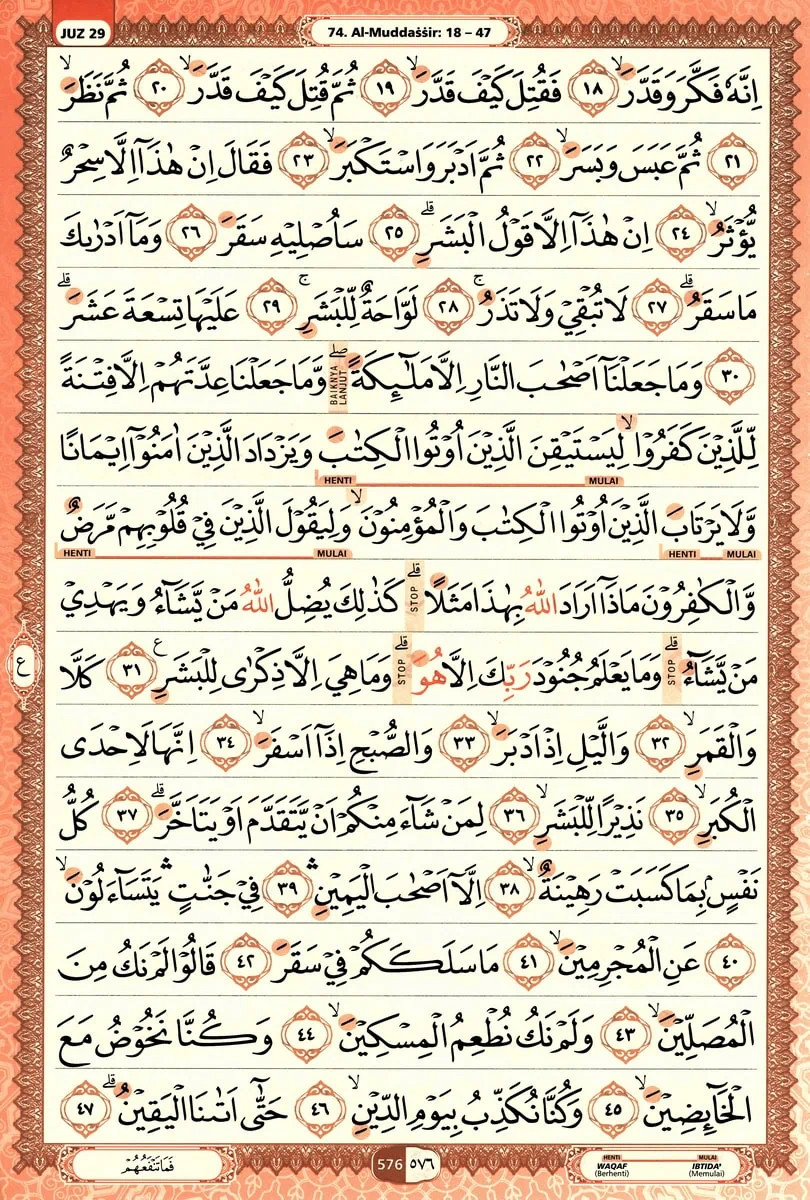 JUZ 29
74. Al-Muddaṡṡir: 18 – 47
اِنَّهٗ فَكَّرَ وَقَدَّرَۙ ١٨ فَقُتِلَ كَيْفَ قَدَّرَۙ ١٩ ثُمَّ قُتِلَ كَيْفَ قَدَّرَۙ ٢٠ ثُمَّ نَظَرَۙ
٢١ ثُمَّ عَبَسَ وَبَسَرَۙ ٢٢ ثُمَّ اَدْبَرَ وَاسْتَكْبَرَۙ ٢٣ فَقَالَ اِنْ هٰذَآ اِلَّا سِحْرٌ
يُّؤْثَرُۙ ٢٤ اِنْ هٰذَآ اِلَّا قَوْلُ الْبَشَرِۗ ٢٥ سَاُصْلِيْهِ سَقَرَ ٢٦ وَمَآ اَدْرٰىكَ
مَا سَقَرُۗ ٢٧ لَا تُبْقِيْ وَلَا تَذَرُۚ ٢٨ لَوَّاحَةٌ لِّلْبَشَرِۚ ٢٩ عَلَيْهَا تِسْعَةَ عَشَرَۗ
٣٠ وَمَا جَعَلْنَآ اَصْحٰبَ النَّارِ اِلَّا مَلٰۤىِٕكَةًۖ BAIKNYA LANJUT وَّمَا جَعَلْنَا عِدَّتَهُمْ اِلَّا فِتْنَةً
لِّلَّذِيْنَ كَفَرُوْاۙ لِيَسْتَيْقِنَ الَّذِيْنَ اُوْتُوا الْكِتٰبَ وَيَزْدَادَ الَّذِيْنَ اٰمَنُوْٓا اِيْمَانًا
HENTI MULAI
وَّلَا يَرْتَابَ الَّذِيْنَ اُوْتُوا الْكِتٰبَ وَالْمُؤْمِنُوْنَۙ وَلِيَقُوْلَ الَّذِيْنَ فِيْ قُلُوْبِهِمْ مَّرَضٌ
HENTI MULAI HENTI MULAI
وَّالْكٰفِرُوْنَ مَاذَآ اَرَادَ اللّٰهُ بِهٰذَا مَثَلًاۗ STOP كَذٰلِكَ يُضِلُّ اللّٰهُ مَنْ يَّشَاۤءُ وَيَهْدِيْ
مَنْ يَّشَاۤءُۗ STOP وَمَا يَعْلَمُ جُنُوْدَ رَبِّكَ اِلَّا هُوَۗ STOP وَمَا هِيَ اِلَّا ذِكْرٰى لِلْبَشَرِ ࣖ ٣١ كَلَّا
ع
وَالْقَمَرِۙ ٣٢ وَالَّيْلِ اِذْ اَدْبَرَۙ ٣٣ وَالصُّبْحِ اِذَآ اَسْفَرَۙ ٣٤ اِنَّهَا لَاِحْدَى
الْكُبَرِۙ ٣٥ نَذِيْرًا لِّلْبَشَرِۙ ٣٦ لِمَنْ شَاۤءَ مِنْكُمْ اَنْ يَّتَقَدَّمَ اَوْ يَتَاَخَّرَۗ ٣٧ كُلُّ
نَفْسٍۢ بِمَا كَسَبَتْ رَهِيْنَةٌۙ ٣٨ اِلَّآ اَصْحٰبَ الْيَمِيْنِۛ ٣٩ فِيْ جَنّٰتٍۛ يَتَسَاۤءَلُوْنَۙ
٤٠ عَنِ الْمُجْرِمِيْنَۙ ٤١ مَا سَلَكَكُمْ فِيْ سَقَرَ ٤٢ قَالُوْا لَمْ نَكُ مِنَ
الْمُصَلِّيْنَۙ ٤٣ وَلَمْ نَكُ نُطْعِمُ الْمِسْكِيْنَۙ ٤٤ وَكُنَّا نَخُوْضُ مَعَ
الْخَاۤىِٕضِيْنَۙ ٤٥ وَكُنَّا نُكَذِّبُ بِيَوْمِ الدِّيْنِۙ ٤٦ حَتّٰىٓ اَتٰىنَا الْيَقِيْنُۗ ٤٧
فَمَا تَنْفَعُهُمْ
576 ٥٧٦
HENTI MULAI
WAQAF IBTIDA'
(Berhenti) (Memulai)